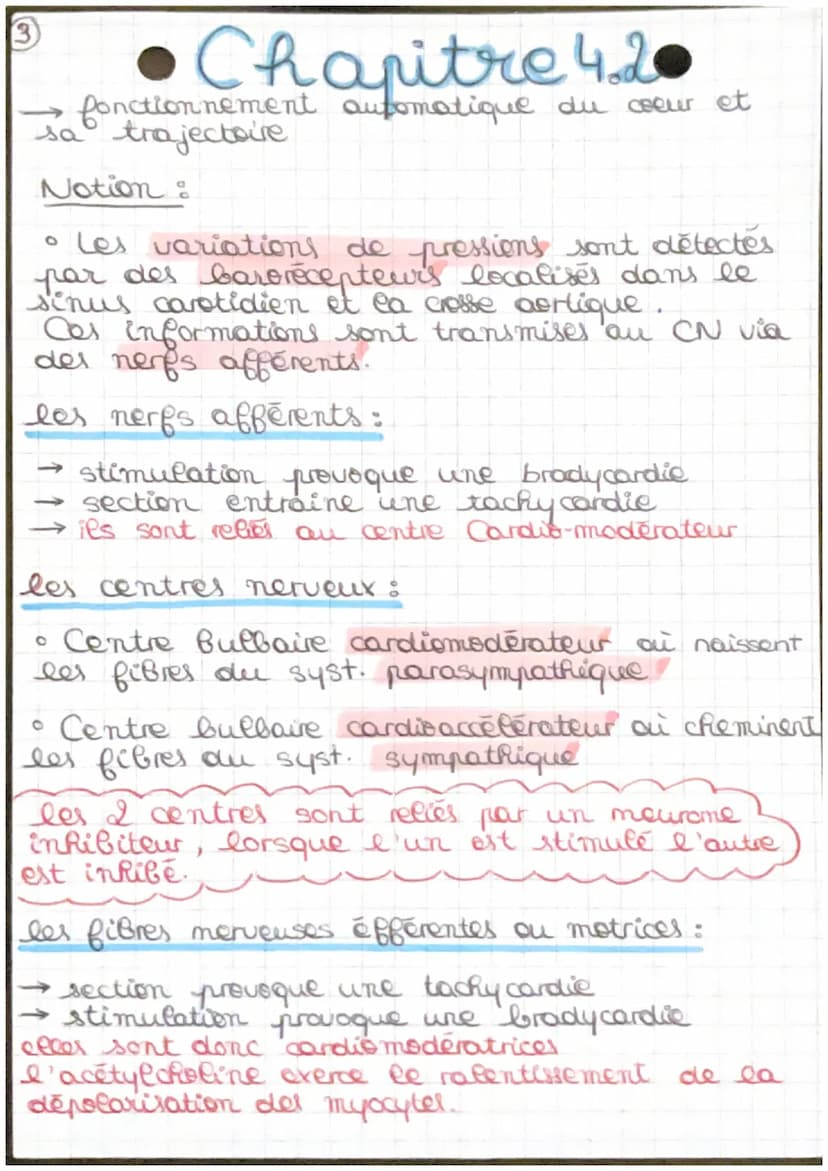 3
• Chapitre 4.2 •
→ fonctionnement automatique du coeur et
sa trajectoire
Notion :
° Les variations de pressions sont détectés
par des barorécepteurs localisés dans le
sinus carotidien et la crosse aortique.
Ces informations sont transmises au CN via
des nerfs afférents.
les nerfs afférents :
→ stimulation provoque une bradycardie
→ section entraîne une tachycardie
→ ils sont reliés au centre Cardio-modérateur
les centres nerveux :
° Centre Bulbaire cardiomodérateur où naissent
les fibres du syst. parasympathique
° Centre bulbaire cardioaccélérateur où cheminent
les fibres du syst. sympathique
les 2 centres sont reliés par un neurone
inhibiteur, lorsque l'un est stimulé l'autre
est inhibé.
les fibres nerveuses éfférentes ou motrices :
→ section provoque une tachycardie
→ stimulation provoque une bradycardie
elles sont donc cardiomodératrices
l'acétylcholine exerce le ralentissement de la
dépolarisation des myocytes.